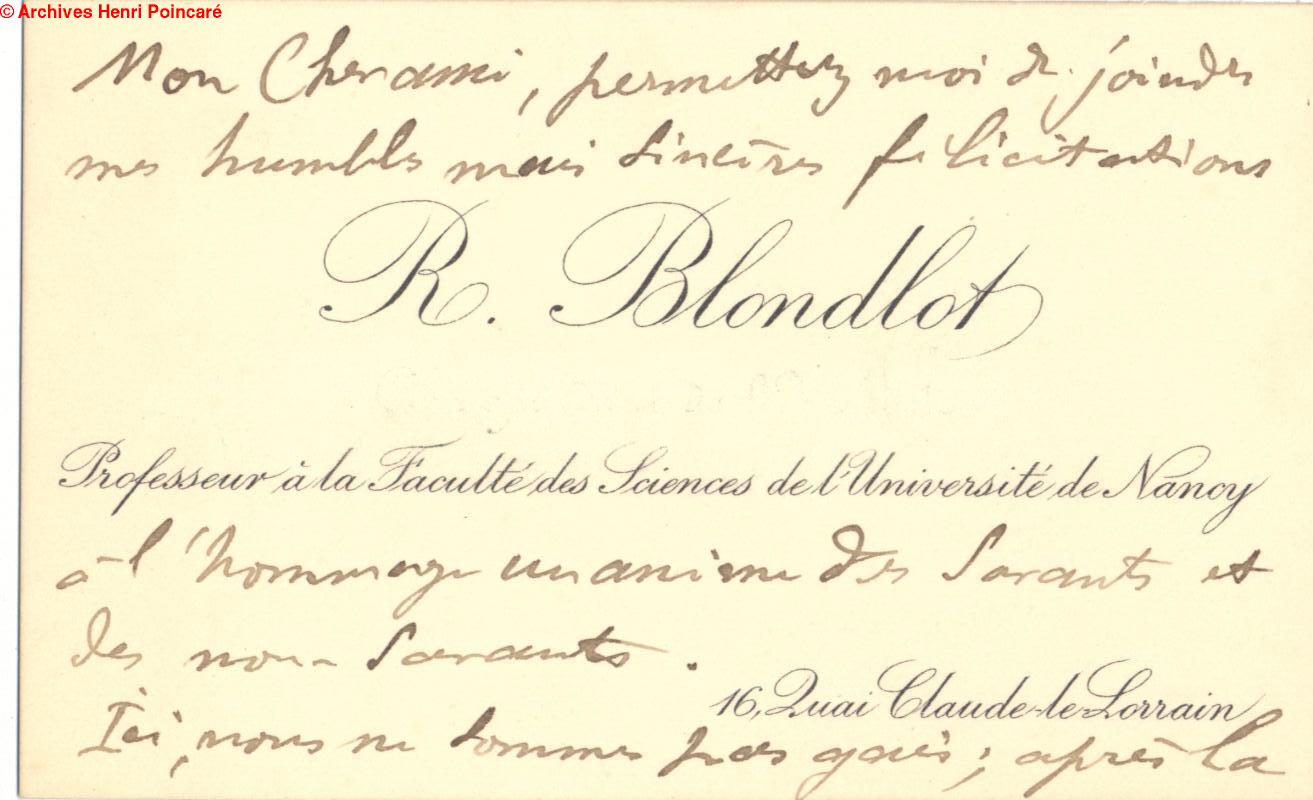 © Archives Henri Poincaré
Mon Cher ami, permettez moi de joindre
mes humbles mais sincères félicitations
R. Blondlot
Professeur à la Faculté des Sciences de l'Université de Nancy
à l'hommage unanime des savants et
des non-savants.
16, Quai Claude-le-Lorrain
Ici, nous ne sommes pas gais ; après la